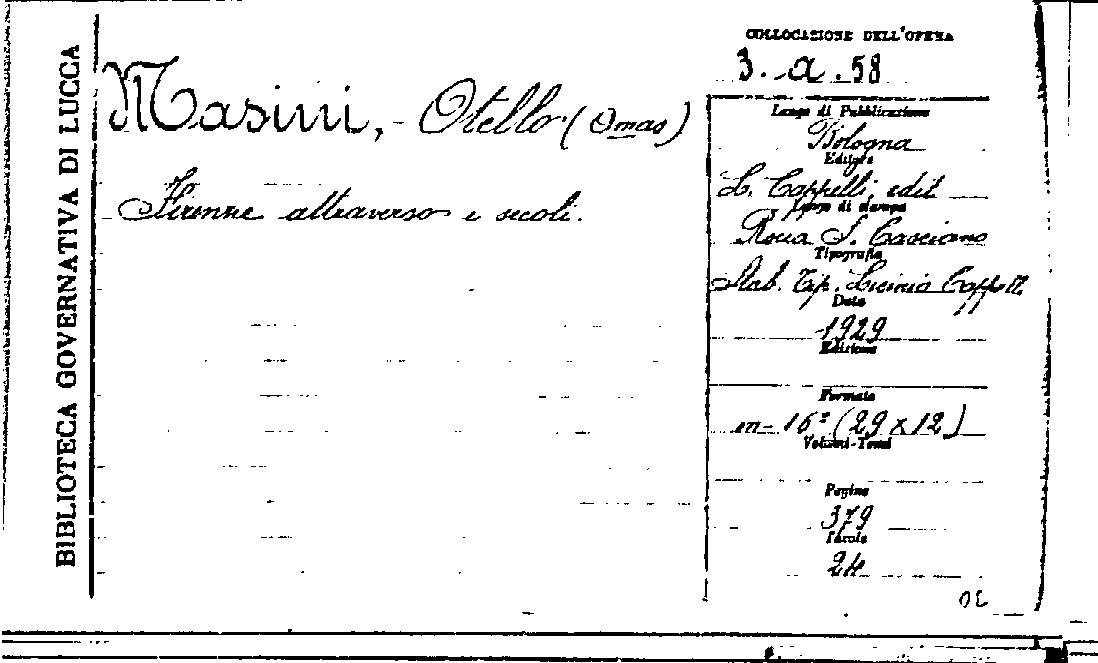 BIBLIOTECA GOVERNATIVA DI LUCCA
Masini, - Otello (Omas)
Firenze attraverso i secoli.
COLLOCAZIONE DELL'OPERA
3. a. 58
Luogo di Pubblicazione
Bologna
Editore
L. Cappelli, edit
Luogo di stampa
Rocca S. Casciano
Tipografia
Stab. Tip. Licinio Cappelli
Data
1929
Edizione
Formato
in-16° (29x12)
Volumi-Tomi
Pagine
379
Tavole
24